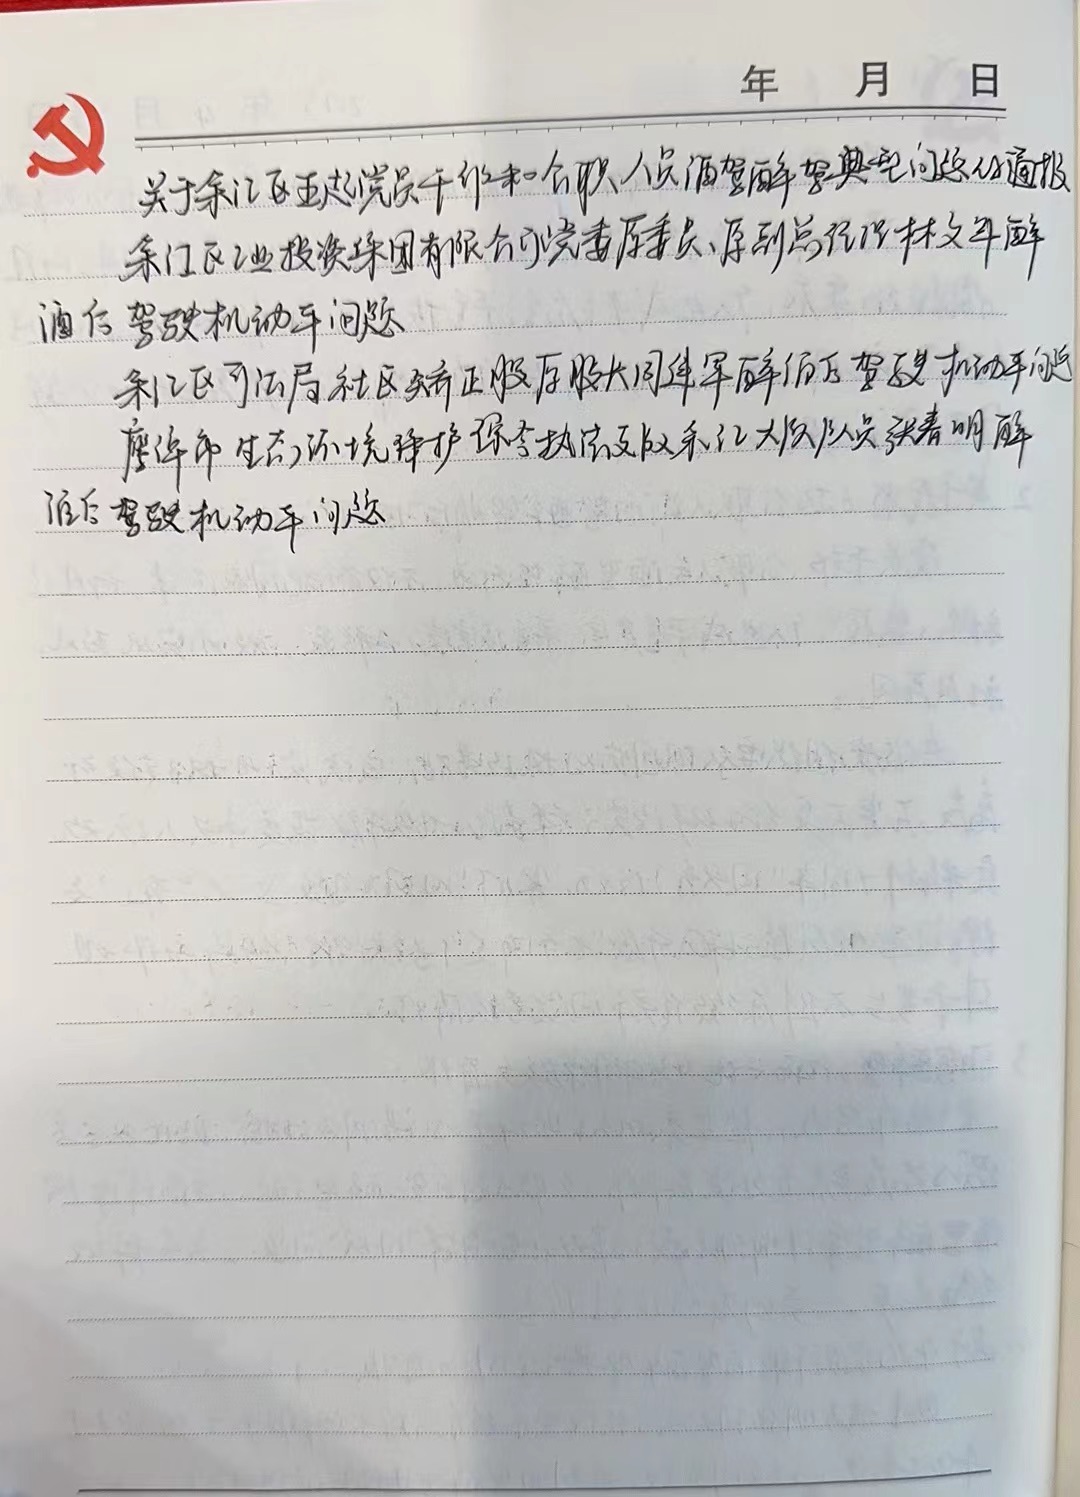 年 月 日
关于余江区五起党员干部和公职人员酒驾醉驾典型问题的通报
余江区工业投资集团有限公司党委原委员、原副总经理林文年醉
酒后驾驶机动车问题
余江区司法局社区矫正股原股长周建军醉酒后驾驶机动车问题
鹰潭市生态环境保护综合执法支队余江大队队员张春明醉
酒后驾驶机动车问题